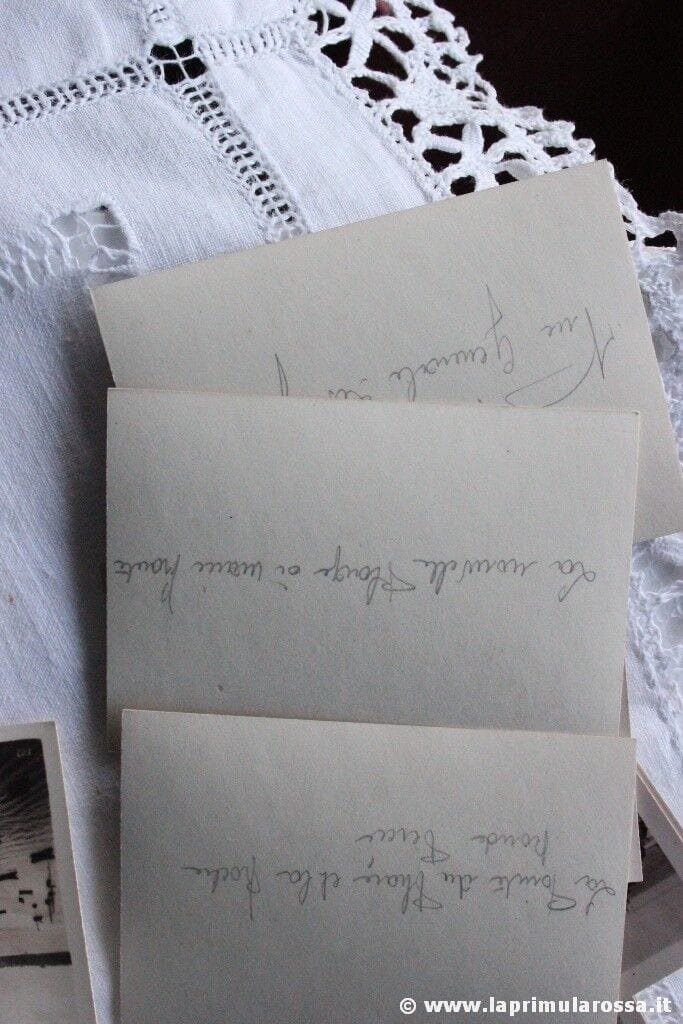 Vue Générale
La nouvelle Plage à marée haute
La Pointe du Phare et la Roche
ronde Percée
© www.laprimularossa.it